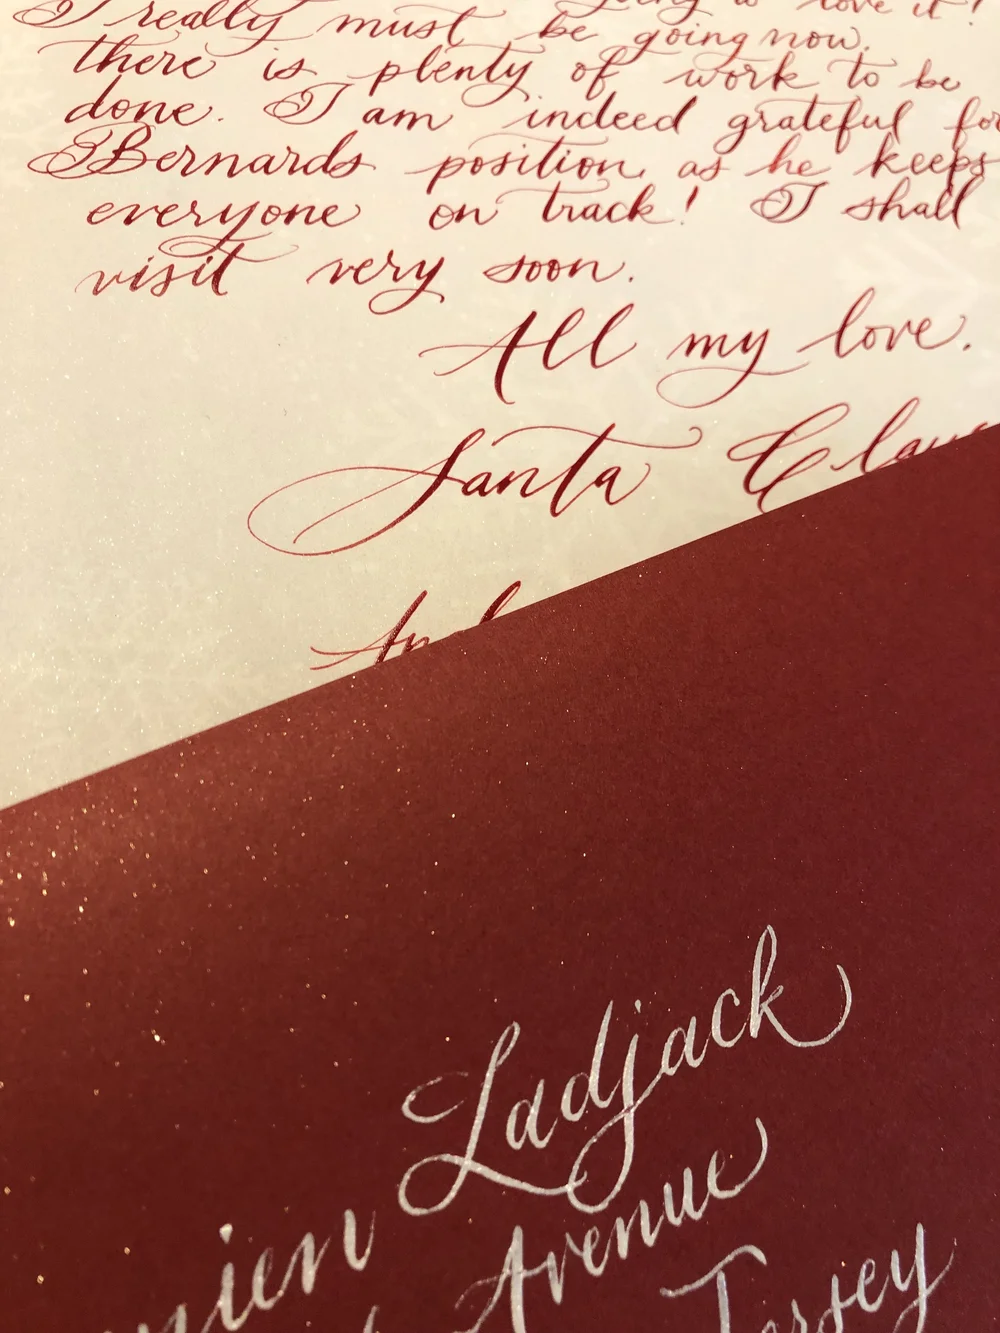 going to love it!
I really must be going now.
there is plenty of work to be
done. I am indeed grateful for
Bernards position, as he keeps
everyone on track! I shall
visit very soon.
All my love.
Santa
Ladjack
Avenue